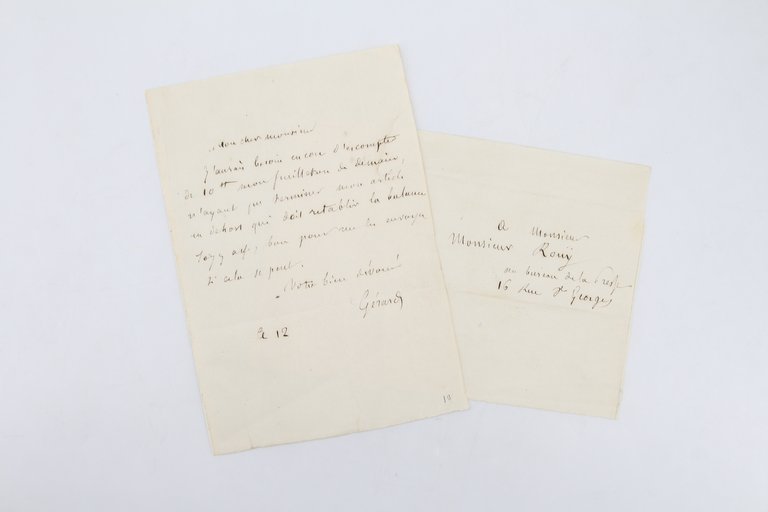 Mon cher monsieur
J'aurais besoin encore d'escompter
de 10 ff mon feuilleton de demain,
n'ayant pu terminer mon article
en dehors qui doit rétablir la balance
Soyez assez bon pour me les envoyer
si cela se peut.
Votre bien dévoué
Gérard
le 12
12
A Monsieur
Monsieur Rouÿ
au bureau de la Presse
16 Rue St Georges